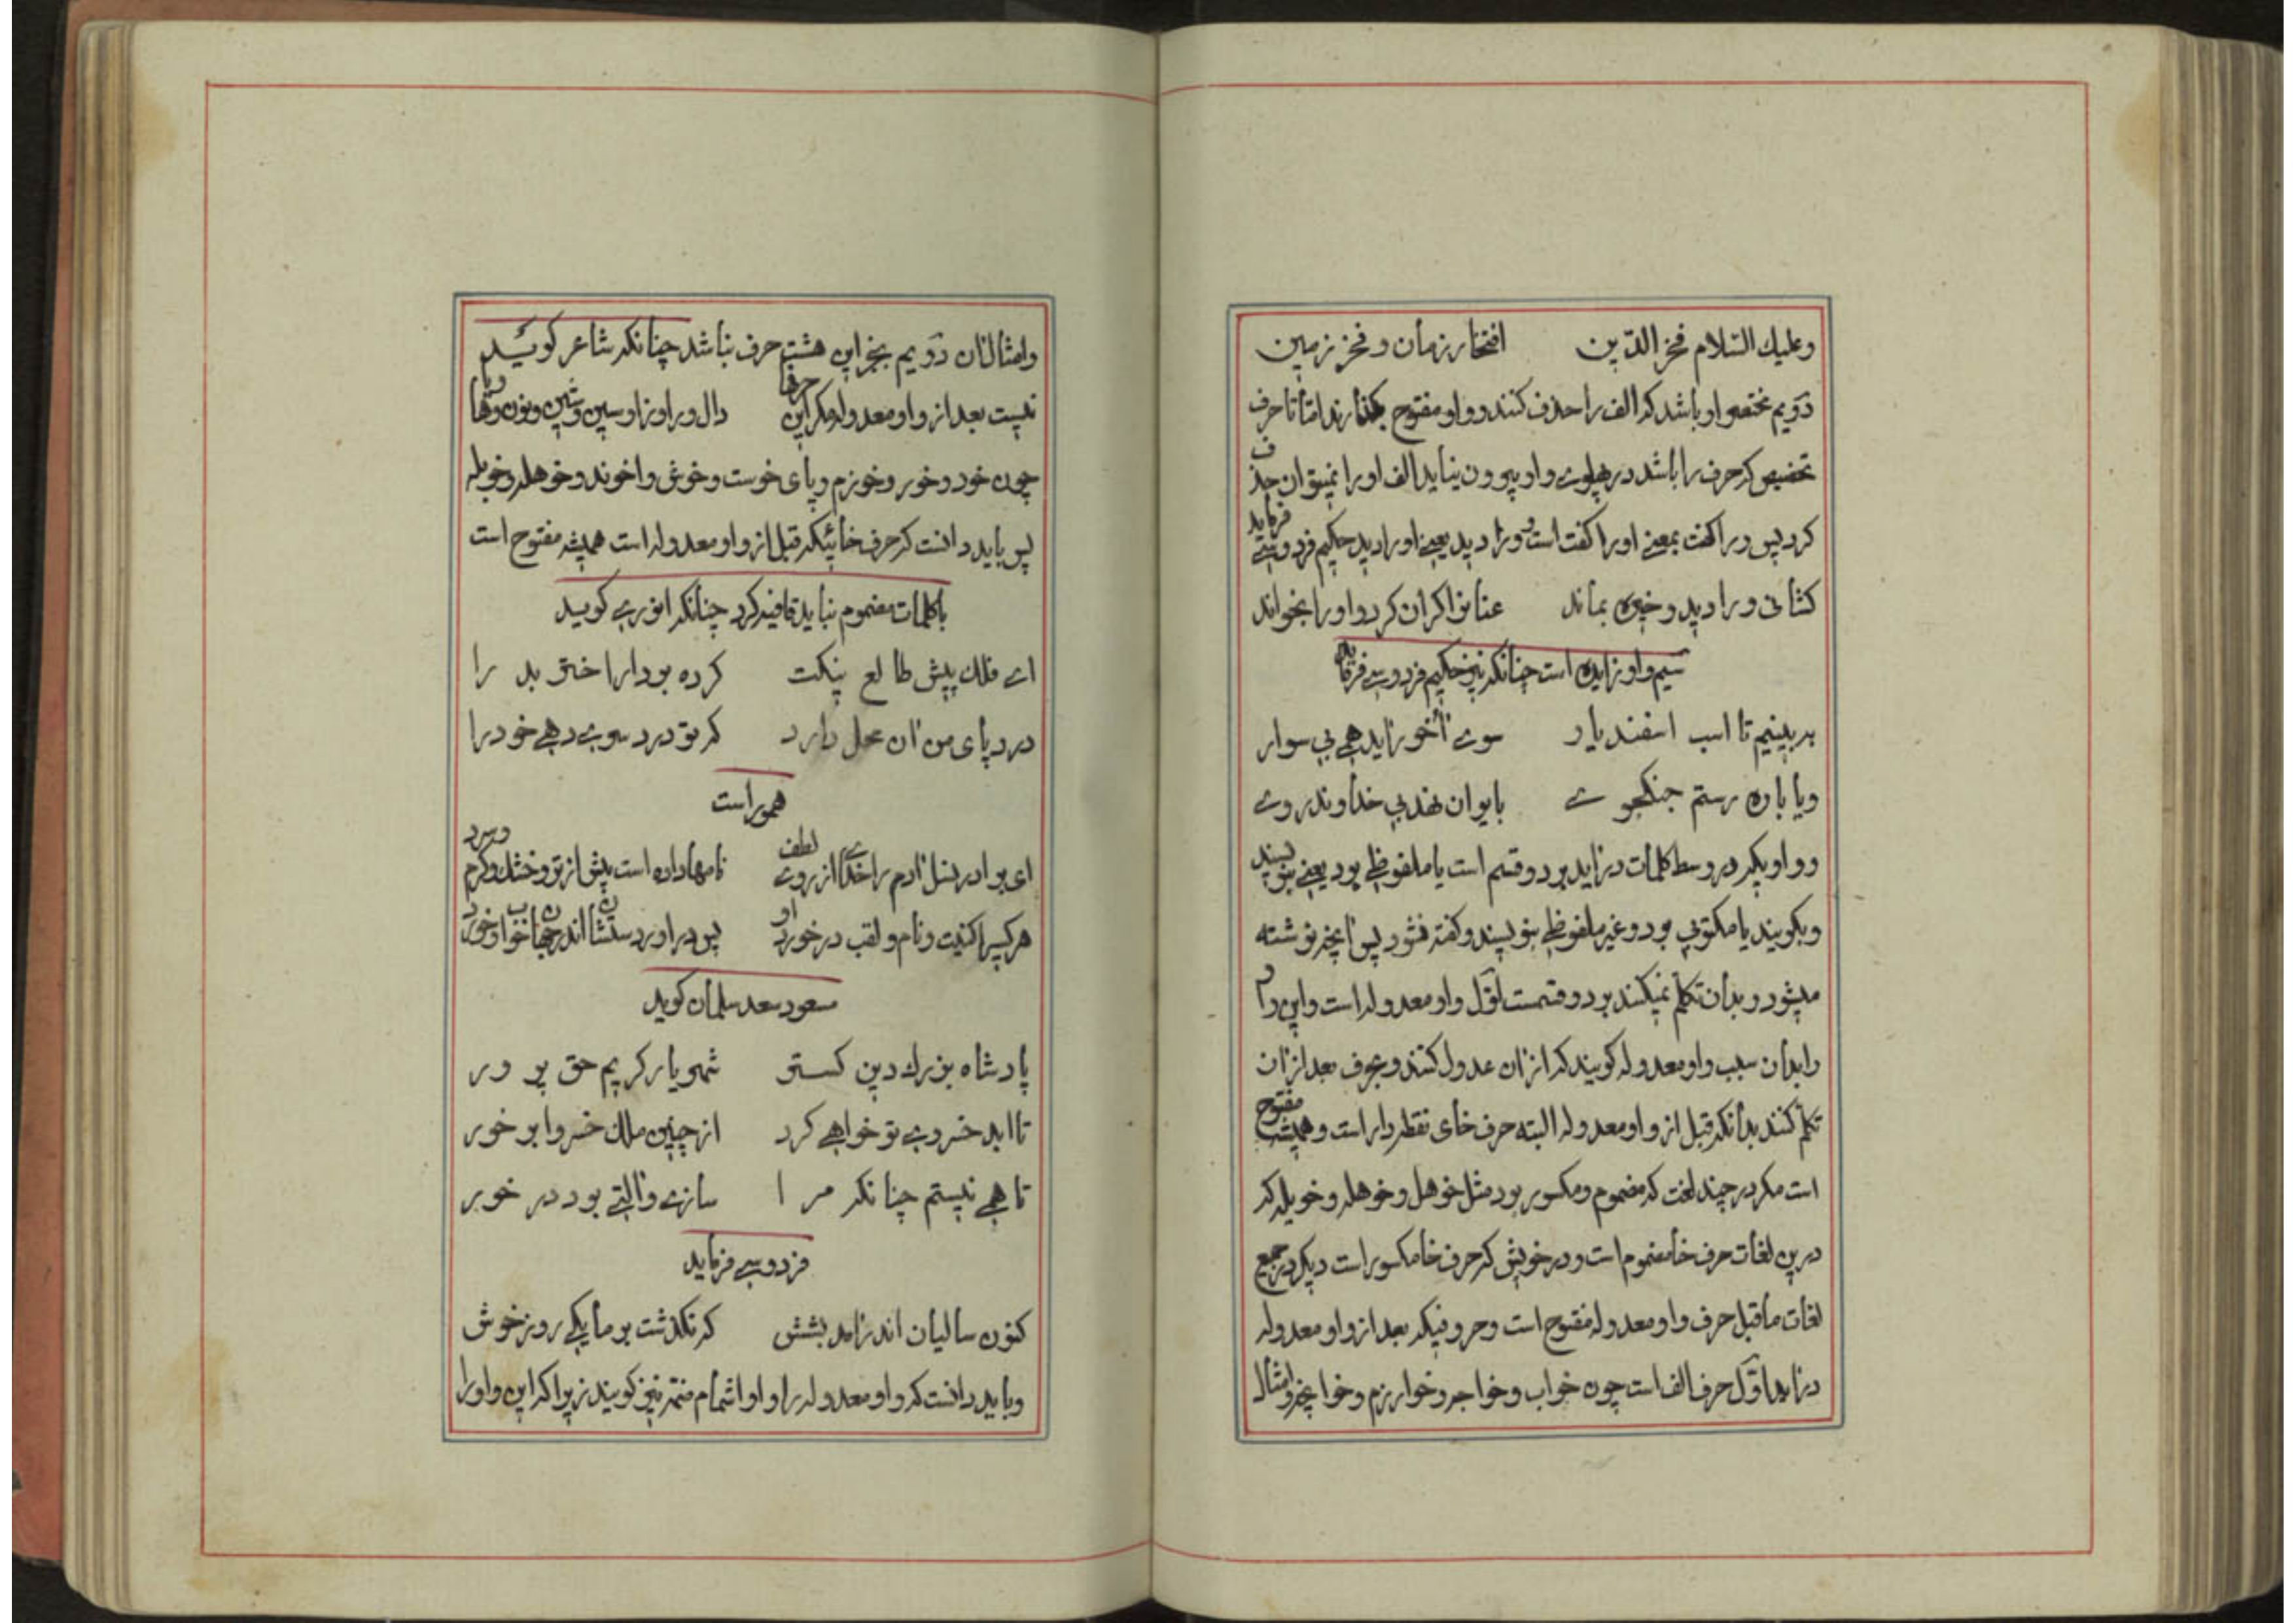 وعلیك السّلام فخر الدّین افتخار زمان و فخر زمین
دوّیم مختصر او باشد که الف را حذف کنند و واو مفتوح بگذارند امّا تا حرف
تخصیص که حرف را باشد در پهلوی واو بیرون نیاید الف او را نمیتوان حذف
کرد پس ورا گفت بمعنی او را گفت است و ورا دید یعنی او را دید حکیم فردوسی فرماید
کشانی ورا دید و خیره بماند عنانرا گران کرد و او را بخواند
سیم واو زایده است چنانکه نیز حکیم فردوسی فرماید
ببینیم تا اسب اسفندیار سوی آخور آید همی بی سوار
ویا باره رستم جنکجوی بایوان نهد بی خداوند روی
و واویکه در وسط کلمات در آید بر دو قسم است یا ملفوظی بود یعنی بنویسند
و بگویند یا مکتوبی بود و غیر ملفوظی بنویسند و گفته نشود پس آنچه نوشته
میشود و بدان تکلّم نمیکنند بر دو قسمت اوّل واو معدوله است و این واو
را بدان سبب واو معدوله گویند که از ان عدول کنند و بحرف بعد از ان
تکلّم کنند بدانکه قبل از واو معدوله البته حرف خای نقطه دار است و همیشه مفتوح
است مکر در چند لغت که مضموم و مکسور بود مثل خوهل و خوهله و خویله که
درین لغات حرف خا مضموم است و در خویش که حرف خا مکسور است دیکر در جمیع
لغات ماقبل حرف واو معدوله مفتوح است و حروفیکه بعد از واو معدوله
در آید اوّل حرف الف است چون خواب و خواجه و خوارزم و خوانچه و امثال
وامثال ان دوّیم بجز این هشت حرف نباشد چنانکه شاعر گوید
نیست بعد از واو معدوله مکر این حرفها دال و را و زا و سین و شین و نون و ها و یا
چون خود و خور و خوزم و پای خوست و خوش و اخوند و خوهله و خویله
پس باید دانست که حرف خائیکه قبل از واو معدوله است همیشه مفتوح است
با کلمات مضموم نباید قافیه کرد چنانکه انوری کوید
ای فلك پیش طالع نیکت کرده بود ار اختر بد را
درد پای من آن محل دارد که تو درد سوی دهی خود را
هموراست
ای برادر نسل ادم را خدای از روی لطف نامها داده است پیش از تو و خشك و کرم و سرد
هر کسی را کنیت و نام و لقب در خورد او پس در اورد ستشان اندر جهان خواب و خورد
مسعود سعد سلمان کوید
پادشاه بزرك دین کستر شهریار کریم حق پرور
تا ابد خسروی تو خواهی کرد از چنین ملك خسروا بر خور
تا همی نیستم چنانکه مرا سازی و التی بود در خور
فردوسی فرماید
کنون سالیان اندر امد بشش که نکذشت بر ما یکی روز خوش
و باید دانست که واو معدوله را واو اشمام ضمّه نیز کویند زیرا که این واو را